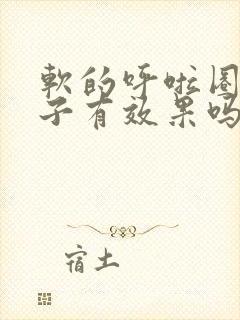 軟的呼啦圈
子有效果吗
宿土